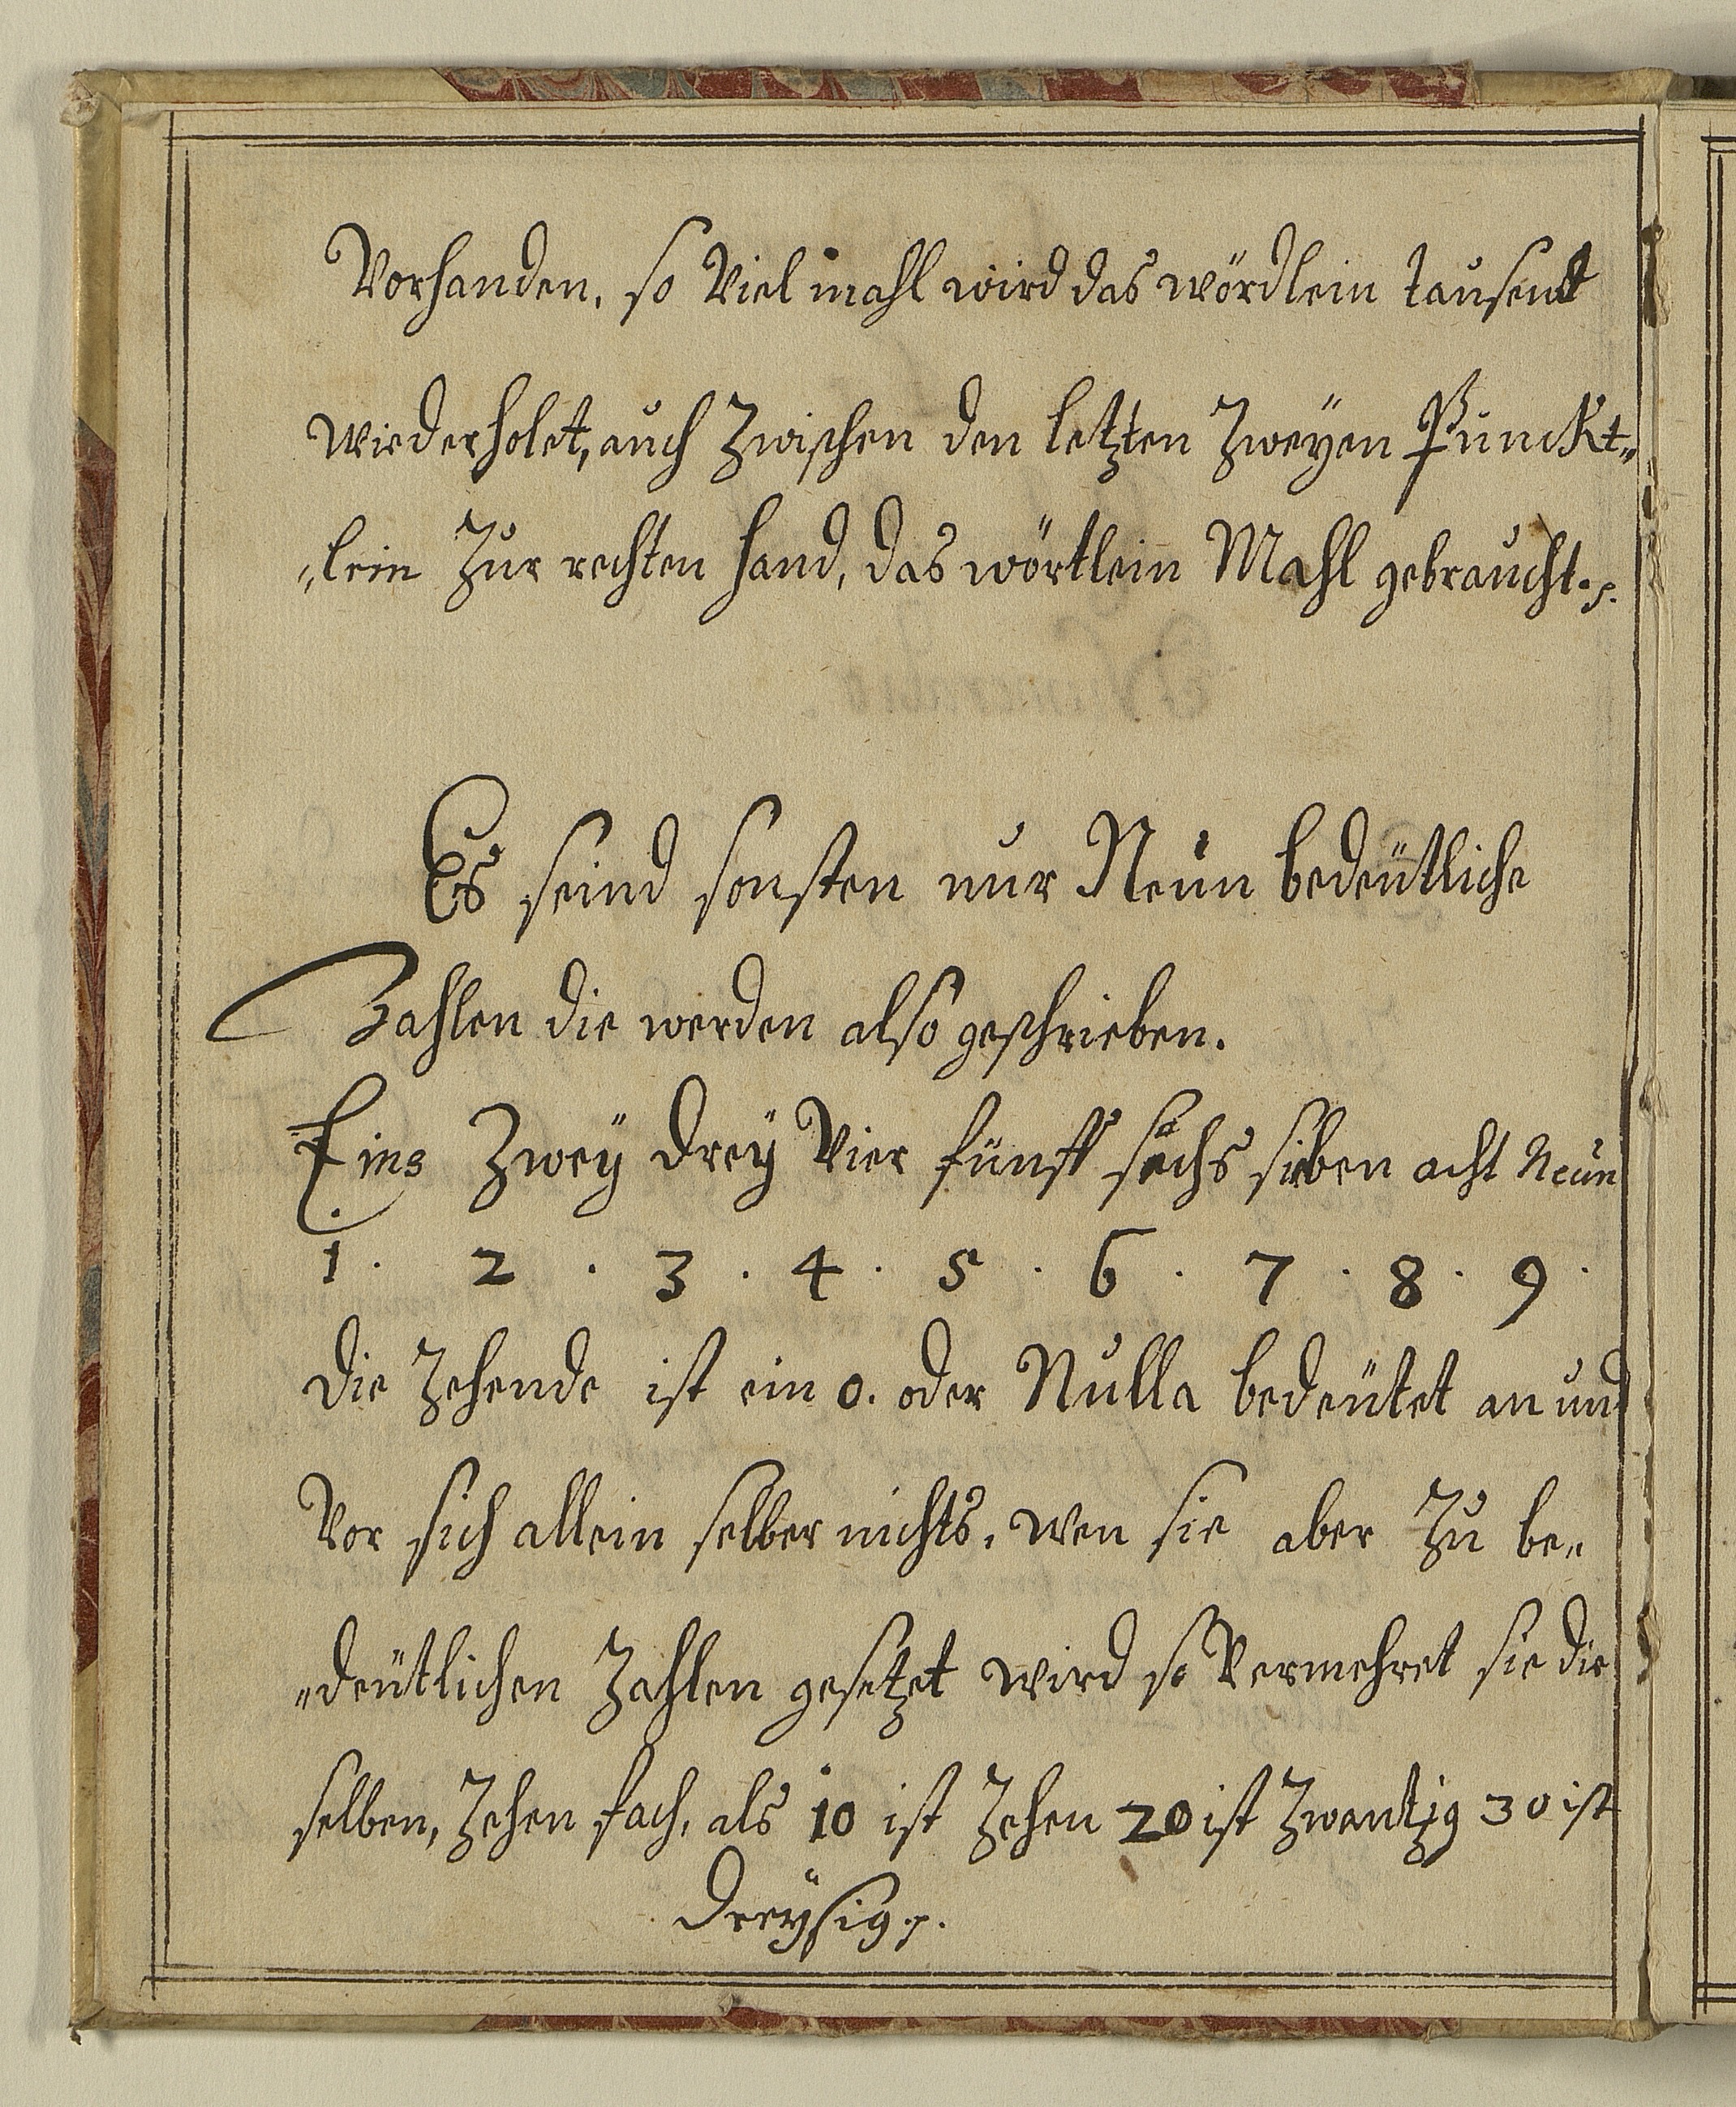 Vorhanden, so Viel mahl wird das wördlein tausent
wiederholet, auch Zwischen den letzten Zweÿen Punckt„
„lein Zur rechten hand, das wörtlein Mahl gebraucht.
Es seind sonsten nur Neün bedeütliche
Zahlen die werden also geschrieben.
Eins Zweÿ dreÿ Vier fünff sechs sieben acht Neün
1. 2 . 3 . 4 . 5 . 6 . 7 . 8 . 9 .
die Zehende ist ein 0. oder Nulla bedeütet an und
Vor sich allein selber nichts, wen sie aber Zu be„
„deütlichen Zahlen gesetzet wird so Vermehret sie die
selben, Zehen fach, als 10 ist Zehen 20 ist Zwantzig 30 ist
dreÿsig.